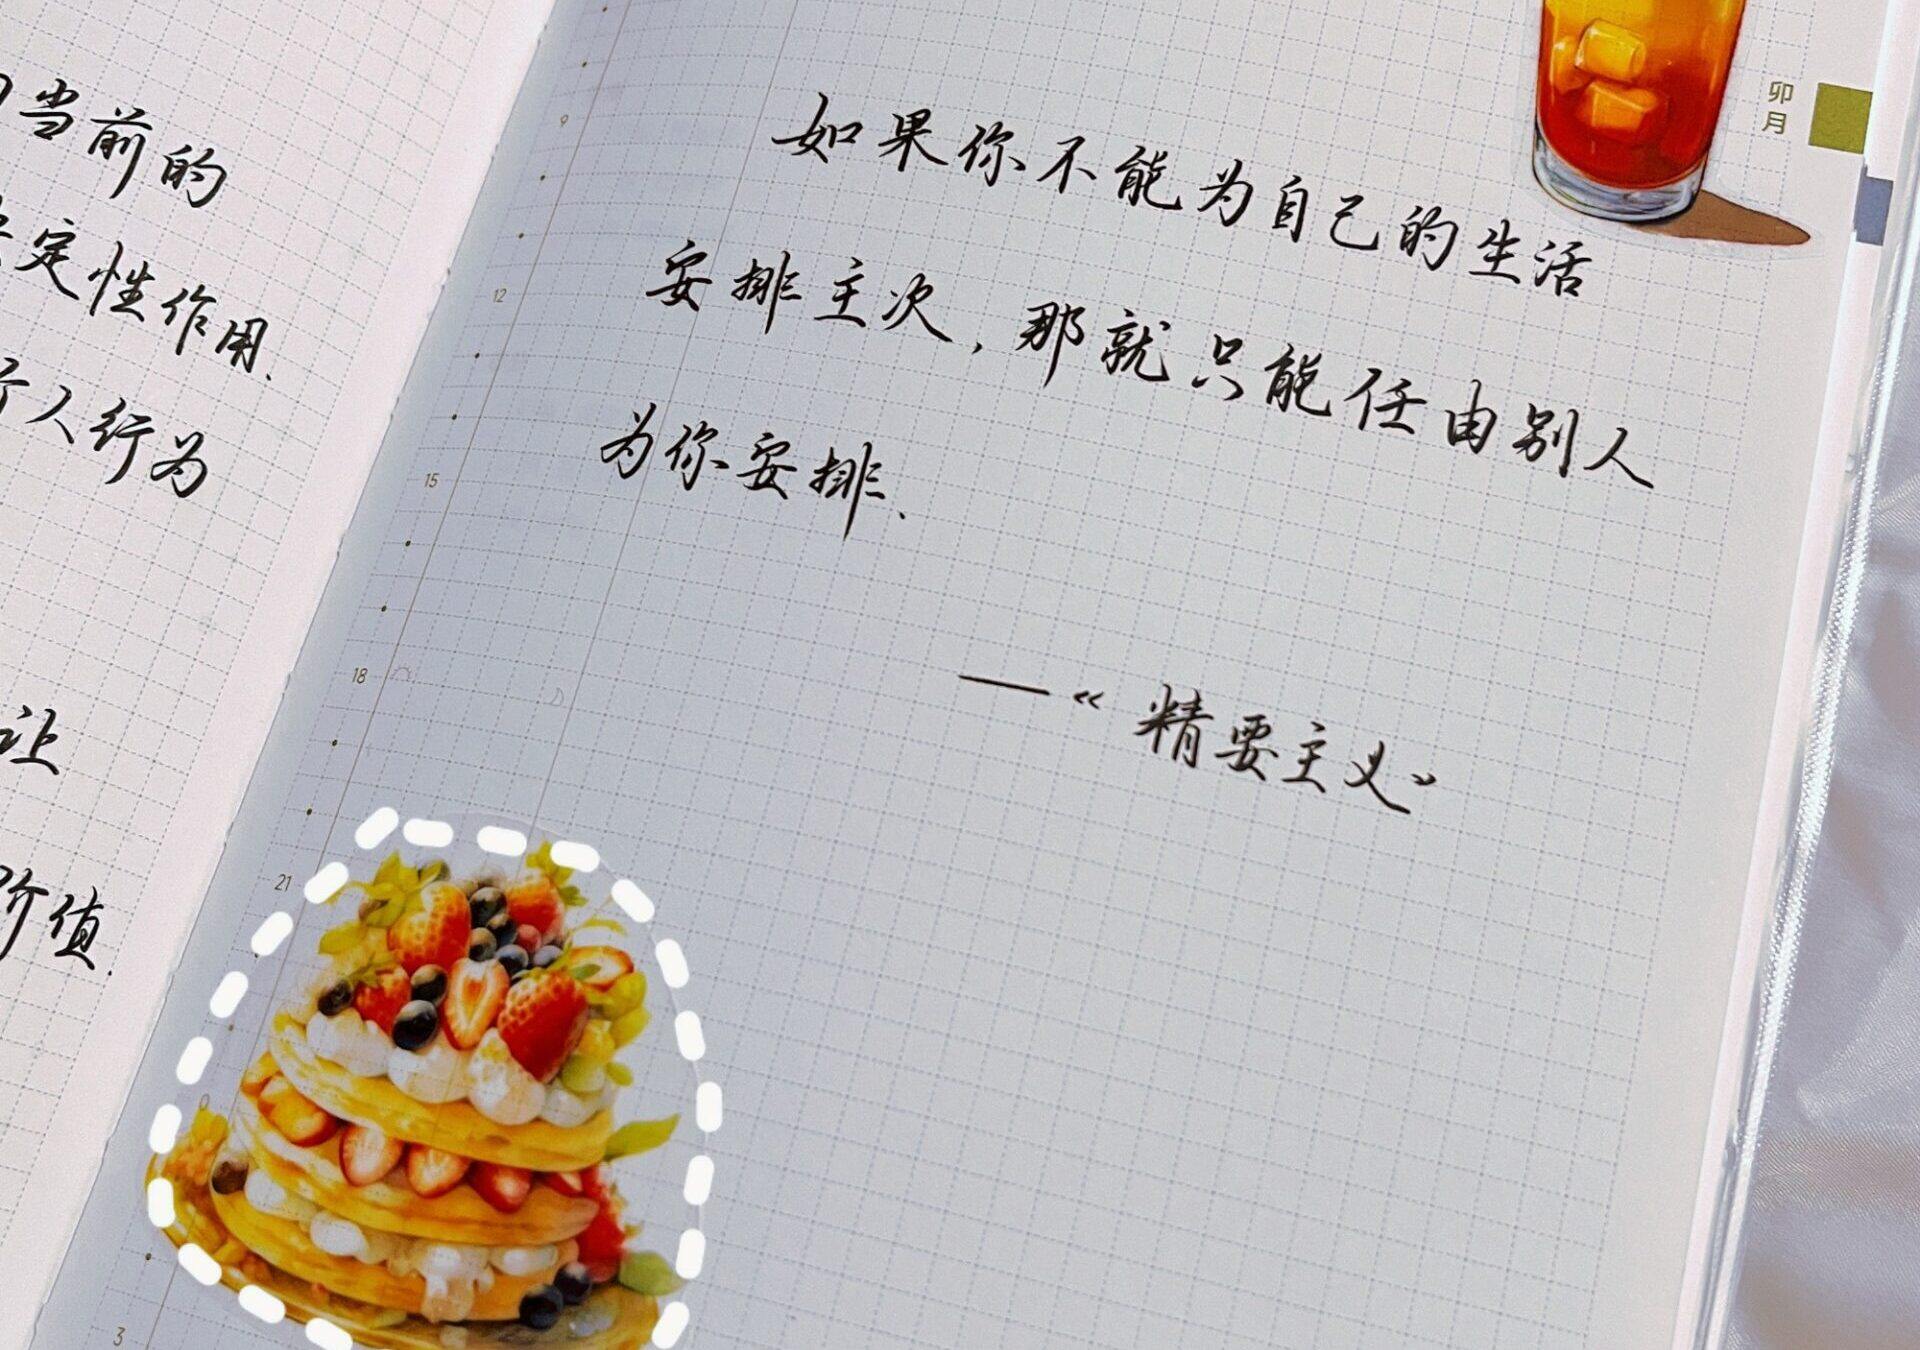 当前的
定性作用.
人行为
让
价值.
如果你不能为自己的生活
安排主次,那就只能任由别人
为你安排.
—《精要主义》
卯月
9
12
15
18
21
3